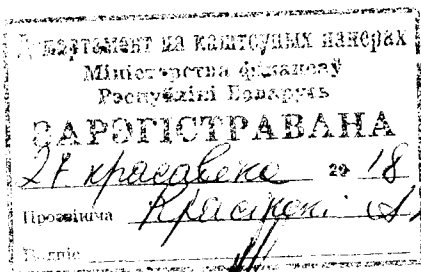 Дэпартамент па каштоўных паперах
Міністэрства фінансаў
Рэспублікі Беларусь
ЗАРЭГІСТРАВАНА
27 красавіка 2018
Прозвішча
Подпіс